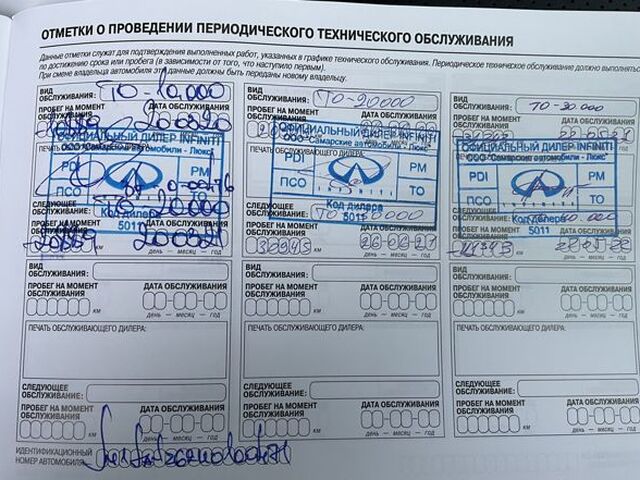 ОТМЕТКИ О ПРОВЕДЕНИИ ПЕРИОДИЧЕСКОГО ТЕХНИЧЕСКОГО ОБСЛУЖИВАНИЯ
Данные отметки служат для подтверждения выполненных работ, указанных в графике технического обслуживания. Периодическое техническое обслуживание должно
по достижению срока или пробега (в зависимости от того, что наступило первым).
При смене владельца автомобиля эти данные должны быть переданы новому владельцу.
ВИД ОБСЛУЖИВАНИЯ: ТО-10000
ПРОБЕГ НА МОМЕНТ ОБСЛУЖИВАНИЯ
ДАТА ОБСЛУЖИВАНИЯ
ОФИЦИАЛЬНЫЙ ДИЛЕР INFINITI
ООО "Самарские автомобили - Люкс"
PDI РМ
ПСО
СЛЕДУЮЩЕЕ ОБСЛУЖИВАНИЕ: ТО-20000
Код дилера
5011
ПРОБЕГ НА МОМЕНТ ОБСЛУЖИВАНИЯ
ДАТА ОБСЛУЖИВАНИЯ
ВИД ОБСЛУЖИВАНИЯ: ТО-20000
ПРОБЕГ НА МОМЕНТ
ДАТА ОБСЛУЖИВАНИЯ
ОФИЦИАЛЬНЫЙ ДИЛЕР INFINITI
"Самарские автомобили - Люкс"
PDI РМ
ПСО ТО
СЛЕДУЮЩЕЕ ОБСЛУЖИВАНИЕ:
Код дилера
5011
ПРОБЕГ НА МОМЕНТ ОБСЛУЖИВАНИЯ
ДАТА ОБСЛУЖИВАНИЯ
30945 26-06-21
ВИД ОБСЛУЖИВАНИЯ: ТО-30000
ПРОБЕГ НА МОМЕНТ
ДАТА ОБСЛУЖИВАНИЯ
ОФИЦИАЛЬНЫЙ ДИЛЕР INFINITI
ООО "Самарские автомобили - Люкс"
PDI РМ
ПСО ТО
СЛЕДУЮЩЕЕ ОБСЛУЖИВАНИЕ:
Код дилера
5011
ПРОБЕГ НА МОМЕНТ ОБСЛУЖИВАНИЯ
ДАТА ОБСЛУЖИВАНИЯ
ВИД ОБСЛУЖИВАНИЯ:
ПРОБЕГ НА МОМЕНТ ОБСЛУЖИВАНИЯ
ДАТА ОБСЛУЖИВАНИЯ
км день — месяц — год
ПЕЧАТЬ ОБСЛУЖИВАЮЩЕГО ДИЛЕРА:
СЛЕДУЮЩЕЕ ОБСЛУЖИВАНИЕ:
ПРОБЕГ НА МОМЕНТ ОБСЛУЖИВАНИЯ
ДАТА ОБСЛУЖИВАНИЯ
км день — месяц — год
ВИД ОБСЛУЖИВАНИЯ:
ПРОБЕГ НА МОМЕНТ ОБСЛУЖИВАНИЯ
ДАТА ОБСЛУЖИВАНИЯ
км день — месяц — год
ПЕЧАТЬ ОБСЛУЖИВАЮЩЕГО ДИЛЕРА:
СЛЕДУЮЩЕЕ ОБСЛУЖИВАНИЕ:
ПРОБЕГ НА МОМЕНТ ОБСЛУЖИВАНИЯ
ДАТА ОБСЛУЖИВАНИЯ
км день — месяц — год
ВИД ОБСЛУЖИВАНИЯ:
ПРОБЕГ НА МОМЕНТ ОБСЛУЖИВАНИЯ
ДАТА ОБСЛУЖИВАНИЯ
км день — месяц — год
ПЕЧАТЬ ОБСЛУЖИВАЮЩЕГО ДИЛЕРА:
СЛЕДУЮЩЕЕ ОБСЛУЖИВАНИЕ:
ПРОБЕГ НА МОМЕНТ ОБСЛУЖИВАНИЯ
ДАТА ОБСЛУЖИВАНИЯ
км день — месяц — год
ИДЕНТИФИКАЦИОННЫЙ
НОМЕР АВТОМОБИЛЯ